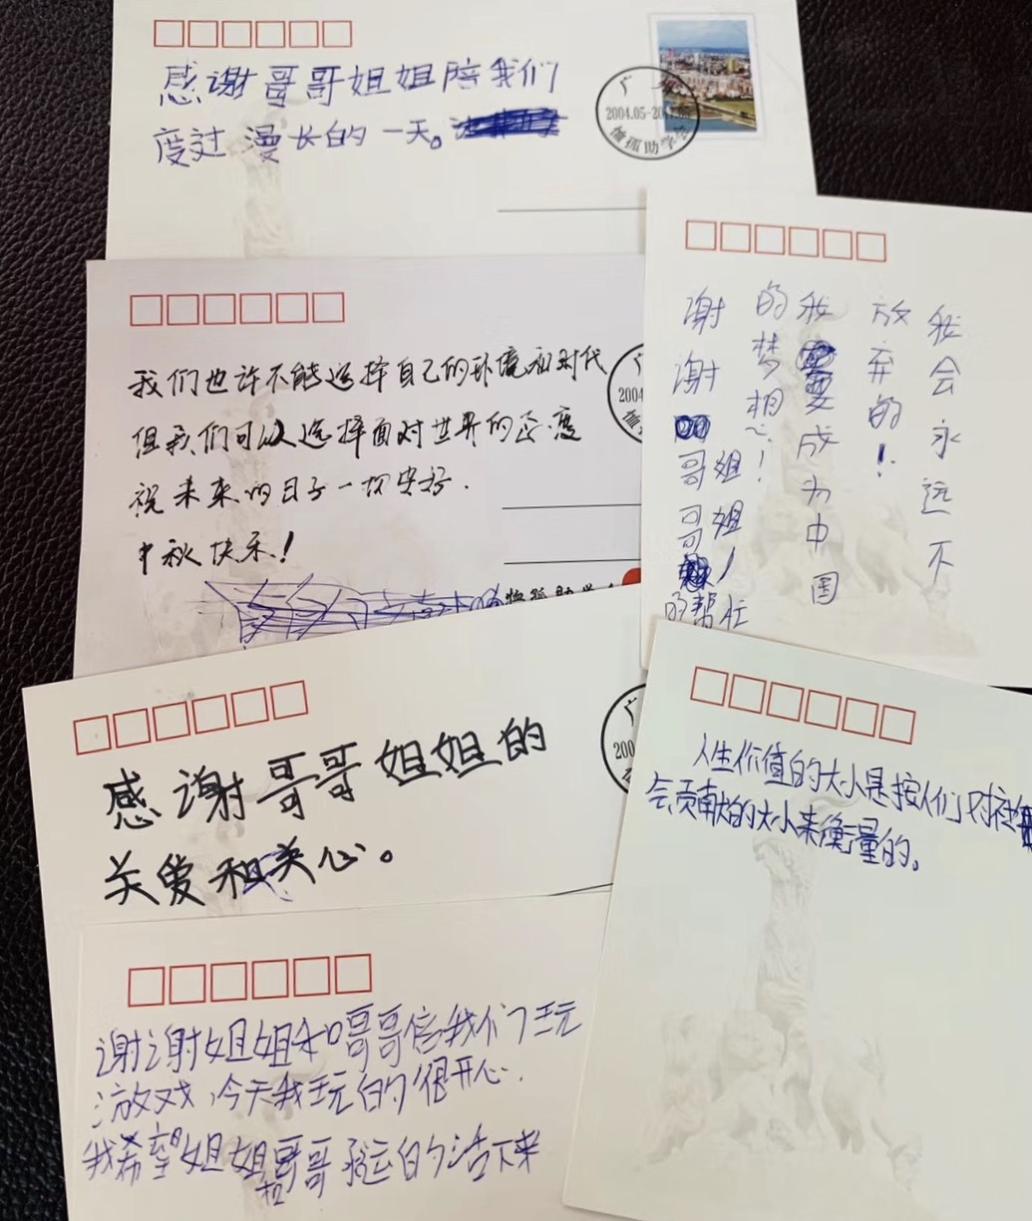 感谢哥哥姐姐陪我们
度过漫长的一天。
广
2004.05-20
恤孤助学会
我们也许不能选择自己的环境和时代
但我们可以选择面对世界的态度
祝未来的日子一切安好.
中秋快乐!
广
2004
谢谢哥哥姐姐!的帮忙
的梦想!
我要成为中国
放弃的!
我会永远不
感谢哥哥姐姐的
关爱和关心。
广
200
人生价值的大小是按人们对社
会贡献的大小来衡量的。
谢谢姐姐和哥哥陪我们玩
游戏,今天我玩的很开心.
我希望姐姐和哥哥永远的活下来